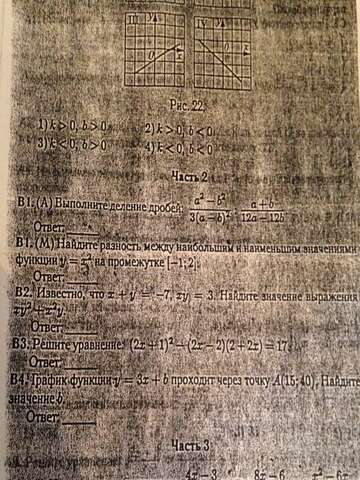 III y
IV y
0 x
0 x
Рис. 22
1) k > 0, b > 0   2) k > 0, b < 0
3) k < 0, b > 0   4) k < 0, b < 0
Часть 2
В1. (А) Выполните деление дробей: (a² − b²)/(3(a − b)²) : (a + b)/(12a − 12b)
Ответ: ______
В1. (М) Найдите разность между наибольшим и наименьшим значениями
функции y = x² на промежутке [−1; 2].
Ответ: ______
В2. Известно, что x + y = −7, xy = 3. Найдите значение выражения
xy² + x²y.
Ответ: ______
В3. Решите уравнение: (2x + 1)² + (2x − 2)(2 + 2x) = 17.
Ответ: ______
В4. График функции y = 3x + b проходит через точку A(15; 40). Найдите
значение b.
Ответ: ______
Часть 3
Решите уравнение
4x − 3   8x − 6